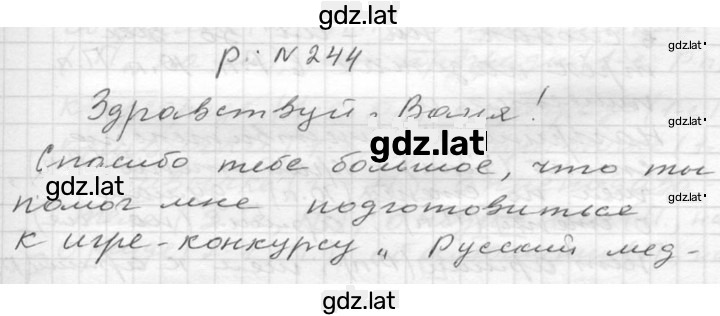 gdz.lat
gdz.lat
р. N 244
Здравствуй, Ваня!
gdz.lat
gdz.lat
Спасибо тебе большое, что ты
gdz.lat
помог мне подготовиться
gdz.lat
к игре-конкурсу „Русский мед-
gdz.lat
gdz.lat